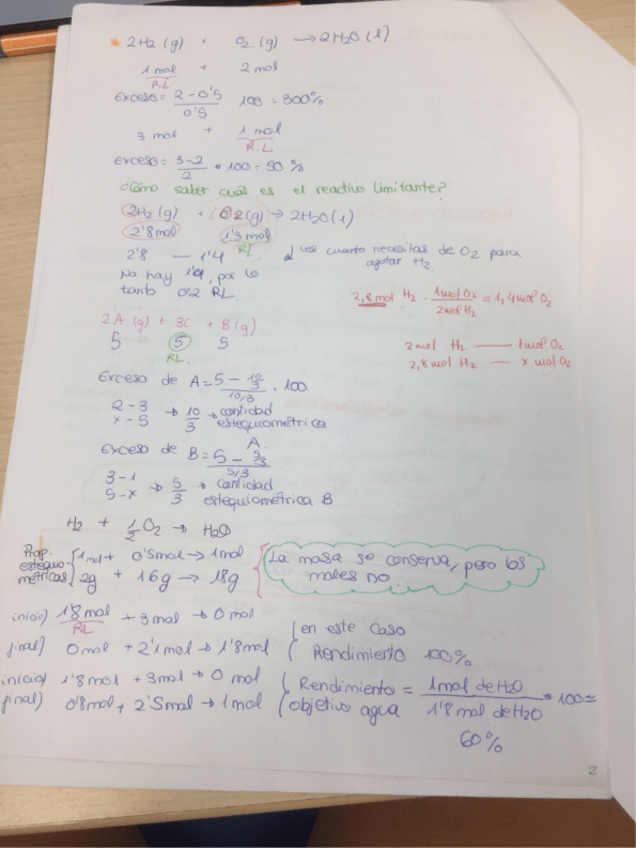 * 2H2 (g) + O2 (g) → 2H2O (l)
1 mol + 2 mol
R.L
Exceso = 2 - 0'5 / 0'5 100 = 300%
3 mol + 1 mol
R.L
exceso = 3-2 / 2 • 100 = 50 %
¿Cómo saber cuál es el reactivo limitante?
2H2 (g) + O2 (g) → 2H2O (l)
2'8 mol 1'3 mol
RL
2'8 — 1'4
ves cuanto necesitas de O2 para agotar H2
No hay 1'4, por lo
tanto O2 RL
2,8 mol H2 · 1 mol O2 / 2 mol H2 = 1,4 mol O2
2 mol H2 —— 1 mol O2
2,8 mol H2 — x mol O2
2A (g) + 3C + B (g)
5 5 5
RL
Exceso de A = 5 - 10/3 / 10/3 . 100
2 - 3
x - 5 → 10/3 → cantidad estequiométrica A.
Exceso de B = 5 - 5/3 / 5/3
3 - 1
5 - x → 5/3 → cantidad estequiométrica B
H2 + 1/2 O2 → H2O
Prop. estequiométricas
1 mol + 0'5 mol → 1 mol
2g + 16g → 18g
La masa se conserva, pero los moles no
inicio) 1'8 mol + 3 mol → 0 mol
RL
final) 0 mol + 2'1 mol → 1'8 mol
en este caso
Rendimiento 100%
inicio) 1'8 mol + 3 mol → 0 mol
final) 0'8 mol + 2'5 mol → 1 mol
Rendimiento objetivo agua = 1 mol de H2O / 1'8 mol de H2O • 100 ≈
60%
2